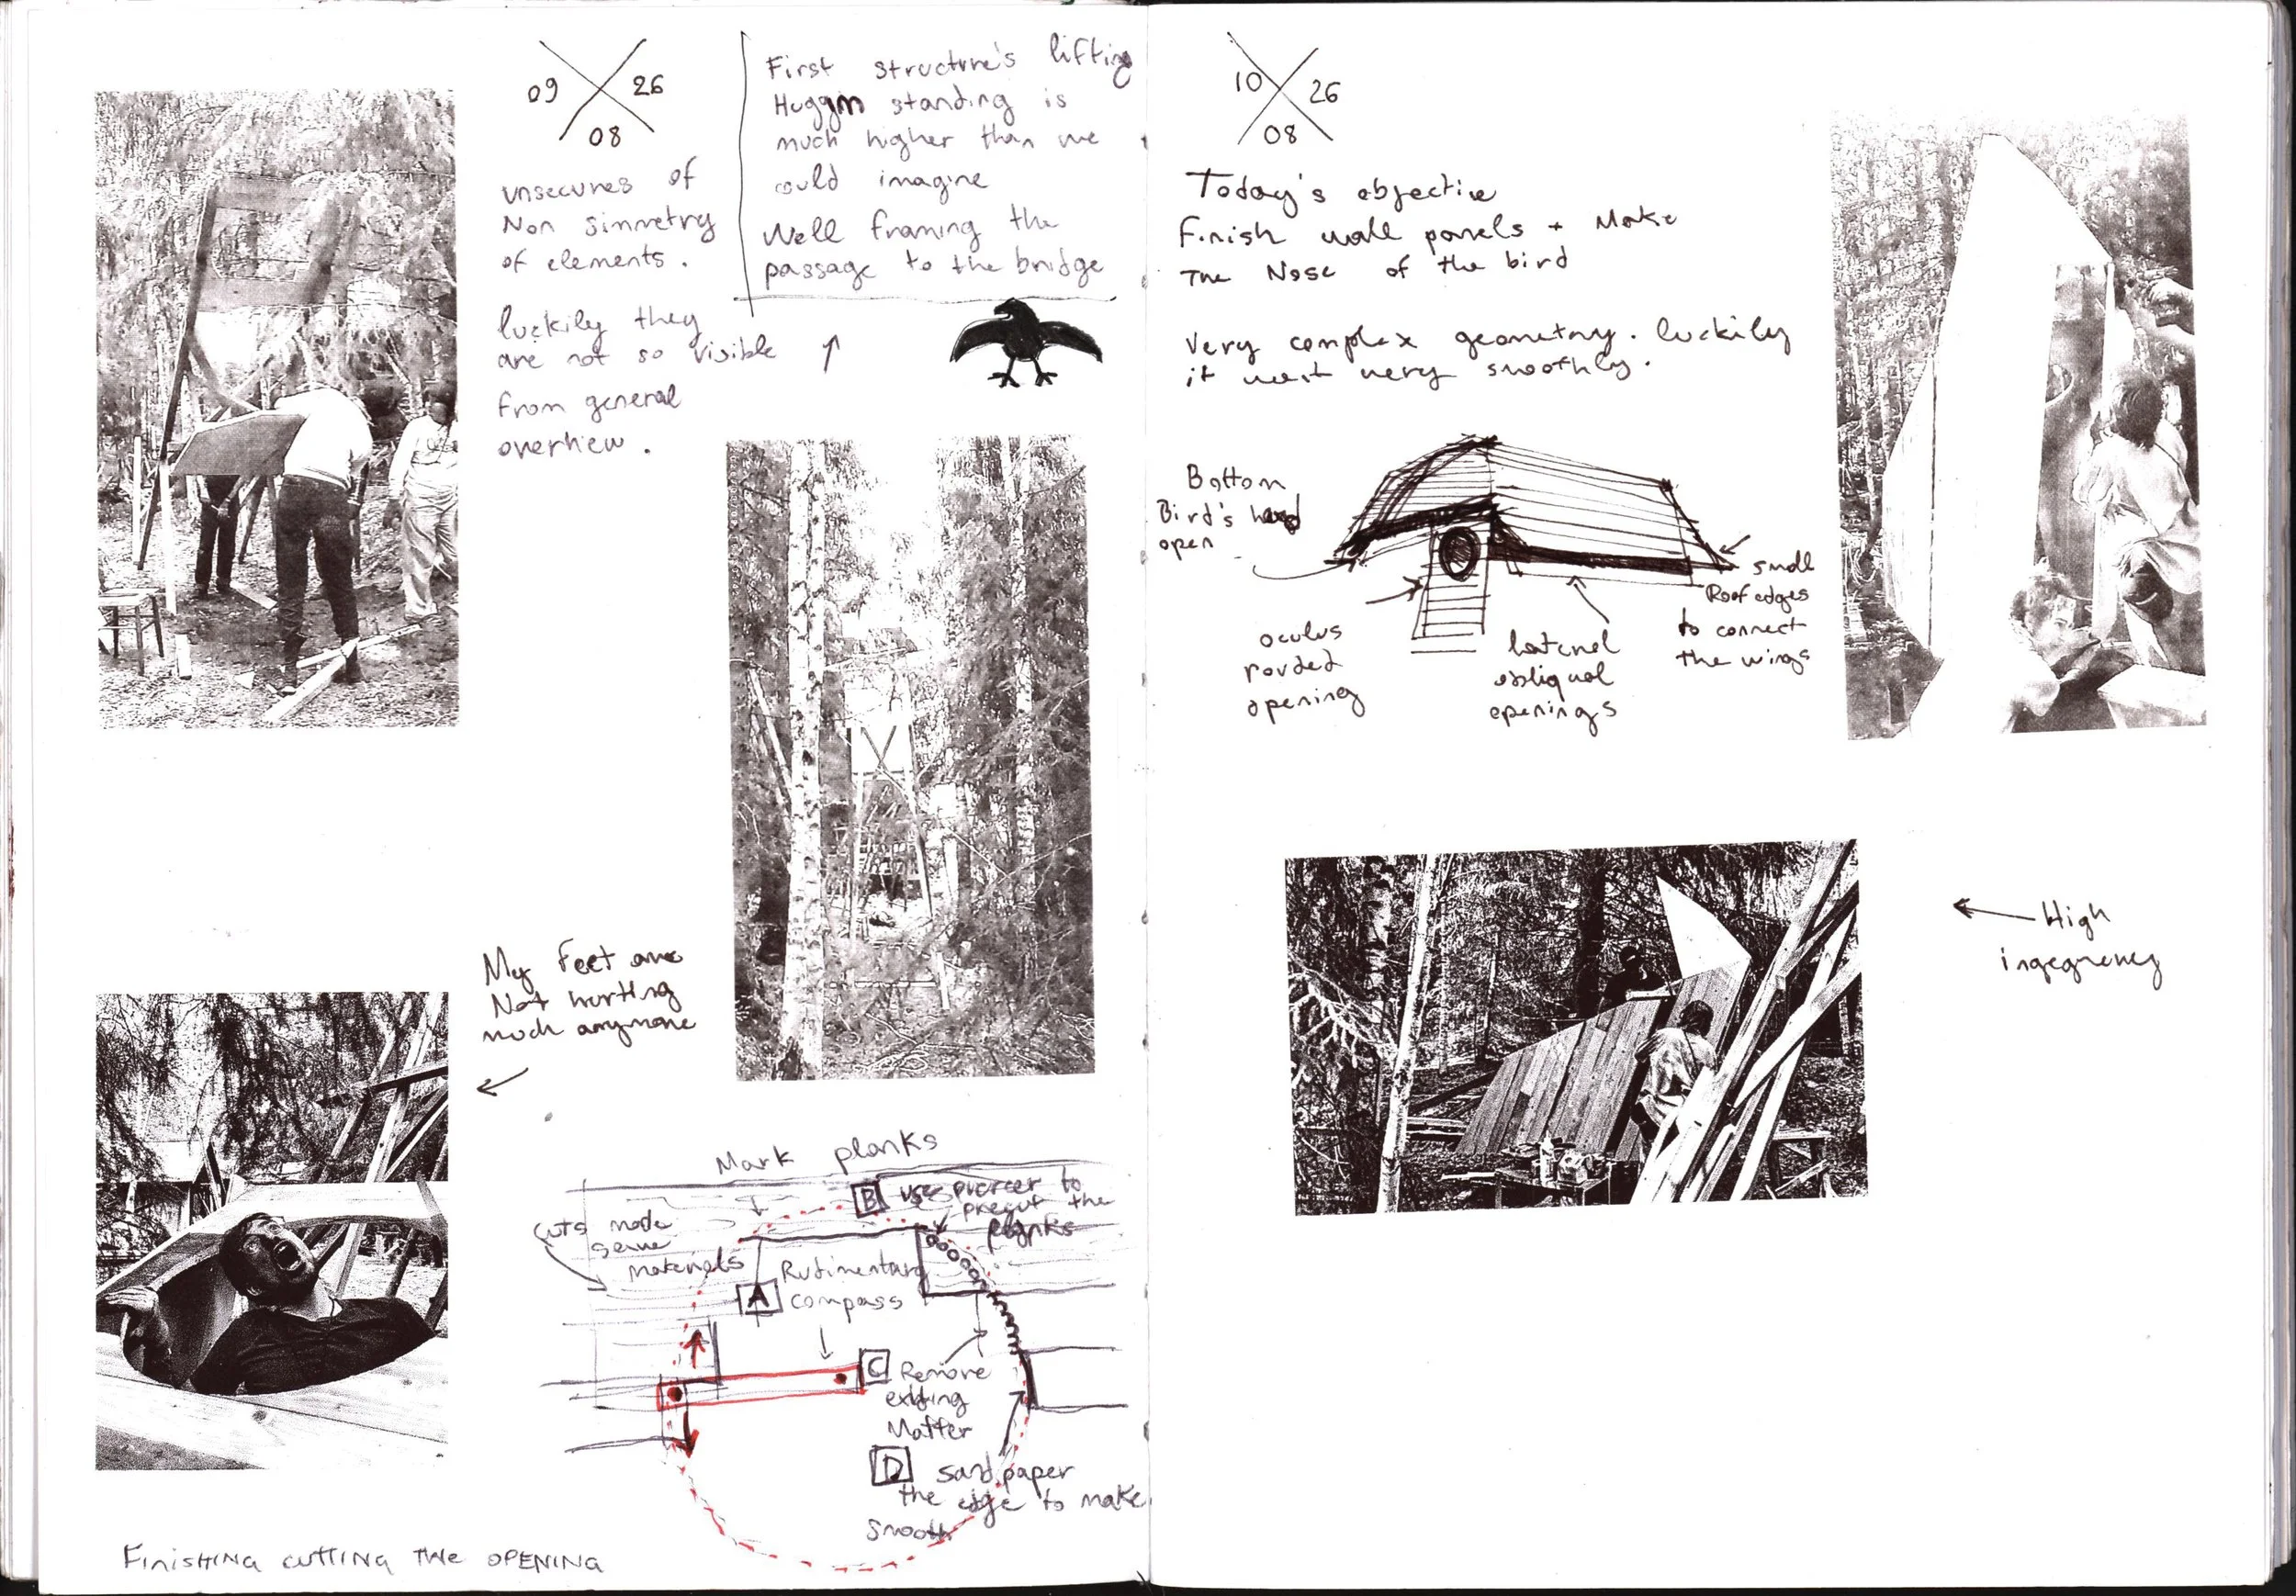 09 26
08
unsecures of
Non simmetry
of elements.
luckily they
are not so visible
from general
overhiew.
First structure's lifting
Huggin standing is
much higher than we
could imagine
Well framing the
passage to the bridge
My feet are
Not hurting
much anymore
Mark planks
cuts made
same
materials
A
Rudimentary
compass
B use piercer to
precut the
planks
C Remove
existing
Matter
D sand paper
the edge to make
smooth
Finishing cutting the opening
10 26
08
Today's objective
Finish wall panels + Make
The Nose of the bird
Very complex geometry. luckily
it went very smoothly.
Bottom
Bird's head
open
oculus
rounded
opening
lateral
obliqual
openings
small
Roof edges
to connect
the wings
High
ingegnerey